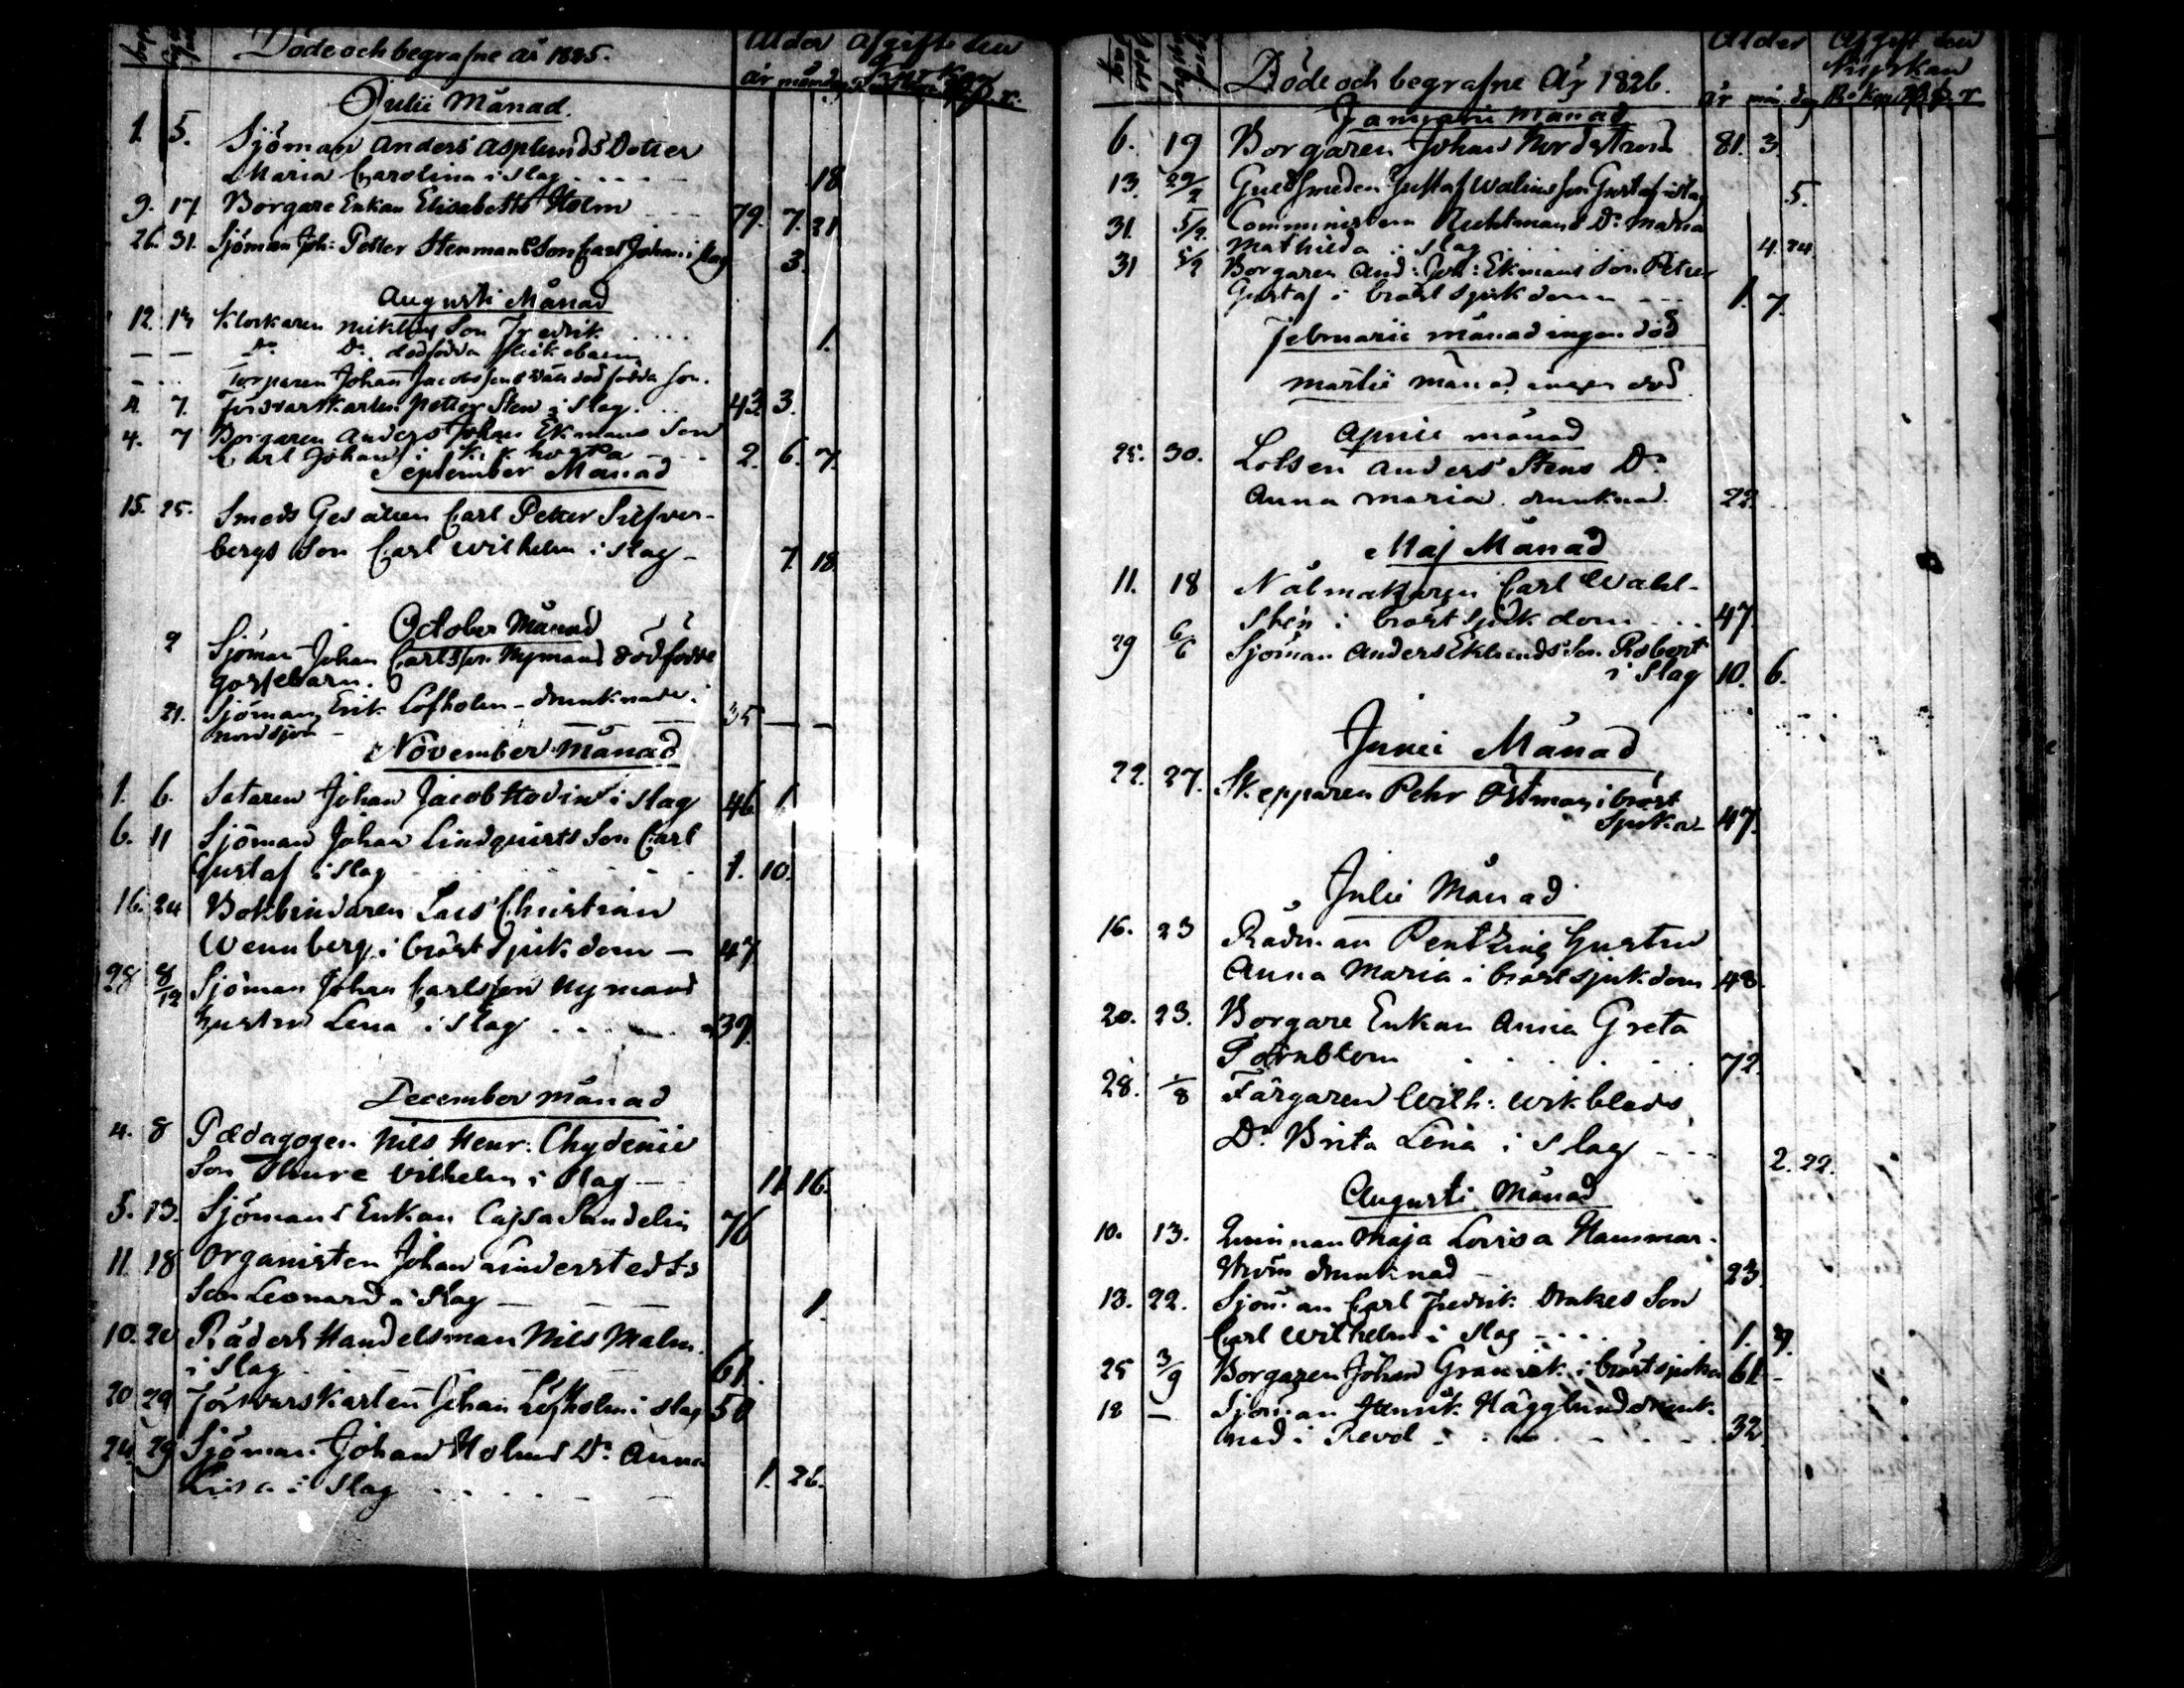 Döde och begrafne år 1825.
Ålder Afgift den
år mån dag
Julii Månad.
1. 5. Sjöman Anders Asplunds Dotter
Maria Carolina i slag - - - - 18
9. 17 Borgare Enkan Elisabetts Holm - - - 79. 7. 21
26. 31. Sjöman Joh: Petter Stenmans Son Carl Johan i slag 3.
Augusti Månad
12. 14 Klockaren Son Fredrik . . . . 1.
— — Do Do dödfödda flickebarn
— — Torparen Johan Jacobssons dödfödda son.
4. 7. Försvarskarlen Petter Sten i slag. . . 43 3.
4. 7 Borgaren Anders Johan Ekmans Son
Carl Johan i kikhosta - - - 2. 6. 7.
September Månad
15. 25. Smeds Gesällen Carl Petter Silfver-
bergs Son Carl Wilhelm i slag - 7. 18.
October Månad
2 Sjöman Johan Carlsson Nymans dödfödde
gossebarn.
21. Sjöman Erik Löfholm - drunknade i
nordsjön — — — 35 — —
November månad
1. 6. Johan Jacob Hodin i slag 46 1.
6. 11 Sjöman Johan Lindquists Son Carl
Gustaf i slag . . . . . . 1. 10.
16. 24 Bokbindaren Lars Christian
Wennberg i bröstsjukdom — 47
28 8/12 Sjöman Johan Carlsson Nymans
hustru Lena i slag . . . . . . 39.
December månad
4. 8 Pædagogen Nils Henr: Chydenii
Son Thure Vilhelm i slag — 11 16.
5. 13. Sjömans Enkan Cajsa Sandelin 76
11. 18 Organisten Johan Linderstedts
Son Leonard i slag — — — 1.
10. 20 Handelsman Nils Malm
i slag — — — 61.
20 29 Försvarskarlen Johan Löfholm i slag 50
24. 29 Sjöman Johan Holms Dr Anna
Lisa i slag . . . . . . — 1. 26.
Döde och begrafne År 1826.
Ålder Afgift den
Kyrkan
år mån. dag
Januarii Månad
6. 19 Borgaren Johan Nordström 81. 3.
13. 22/2 Guldsmeden Gustaf Walins Son Gustaf i slag 5.
31. 5/2 Comministern Dr Maria
Mathilda i slag . . . 4. 24
31 5/2 Borgaren And: Joh: Ekmans Son Petter
Gustaf i bröst sjukdom - - - 1. 7.
Februarii månad ingen död
Martii månad ingen död.
Aprill månad
25. 30. Lotsen Anders Stens Dr
Anna Maria. drunknad. 22.
Maj Månad
11. 18 Nålmakaren Carl Wahl-
stén i bröst sjukdom . . . 47.
29 6/6 Sjöman Anders Eklunds Son Robert
i Slag 10. 6.
Junii Månad
22. 27. Skepparen Pehr Östman i bröst
sjuka - 47.
Julii Månad
16. 23 Rådman Pentzins hustru
Anna Maria i bröstsjukdom 48.
20. 23. Borgare Enkan Anna Greta
Törnblom . . . . . . 72.
28. 1/8 Färgaren Wilh: Wikblads
Dr Brita Lena i slag - - - 2. 22.
Augusti Månad
10. 13. Quinnan Maja Lovisa Hammar-
ström drunknad — 23.
13. 22. Sjöman Carl Fredrik Drakes Son
Carl Wilhelm i slag - . . . . 1. 9.
25 3/9 Borgaren Johan Granvik i bröstsjuka 61 -
18 — Sjöman Henrik Hägglund drunk-
nad i Reval - . . - . - . 32.